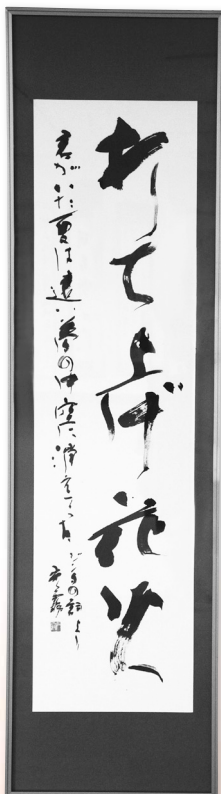 打ち上げ花火
君がいた夏は遠い夢の中空に消えてった の詞より